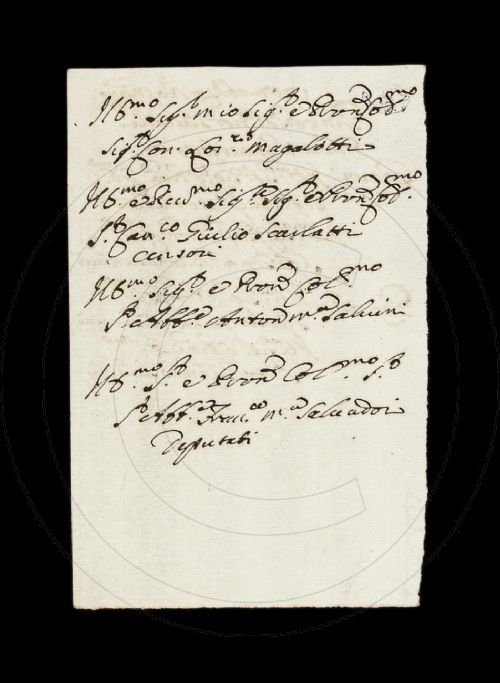 Ill.mo Sig.r mio Sig.r e Pron Col.mo
Sig.r Con. Lor.zo Magalotti
Ill.mo e Rev.mo Sig.r Sig.r e Pron Col.mo
S.r Can.co Giulio Scarlatti
Censori
Ill.mo Sig.r e Pron Col.mo
S.r Abb.e Anton M.a Salvini
Ill.mo S.r e Pron Col.mo S.r
S.r Abb.e Fran.co M.a Salvadori
Deputati